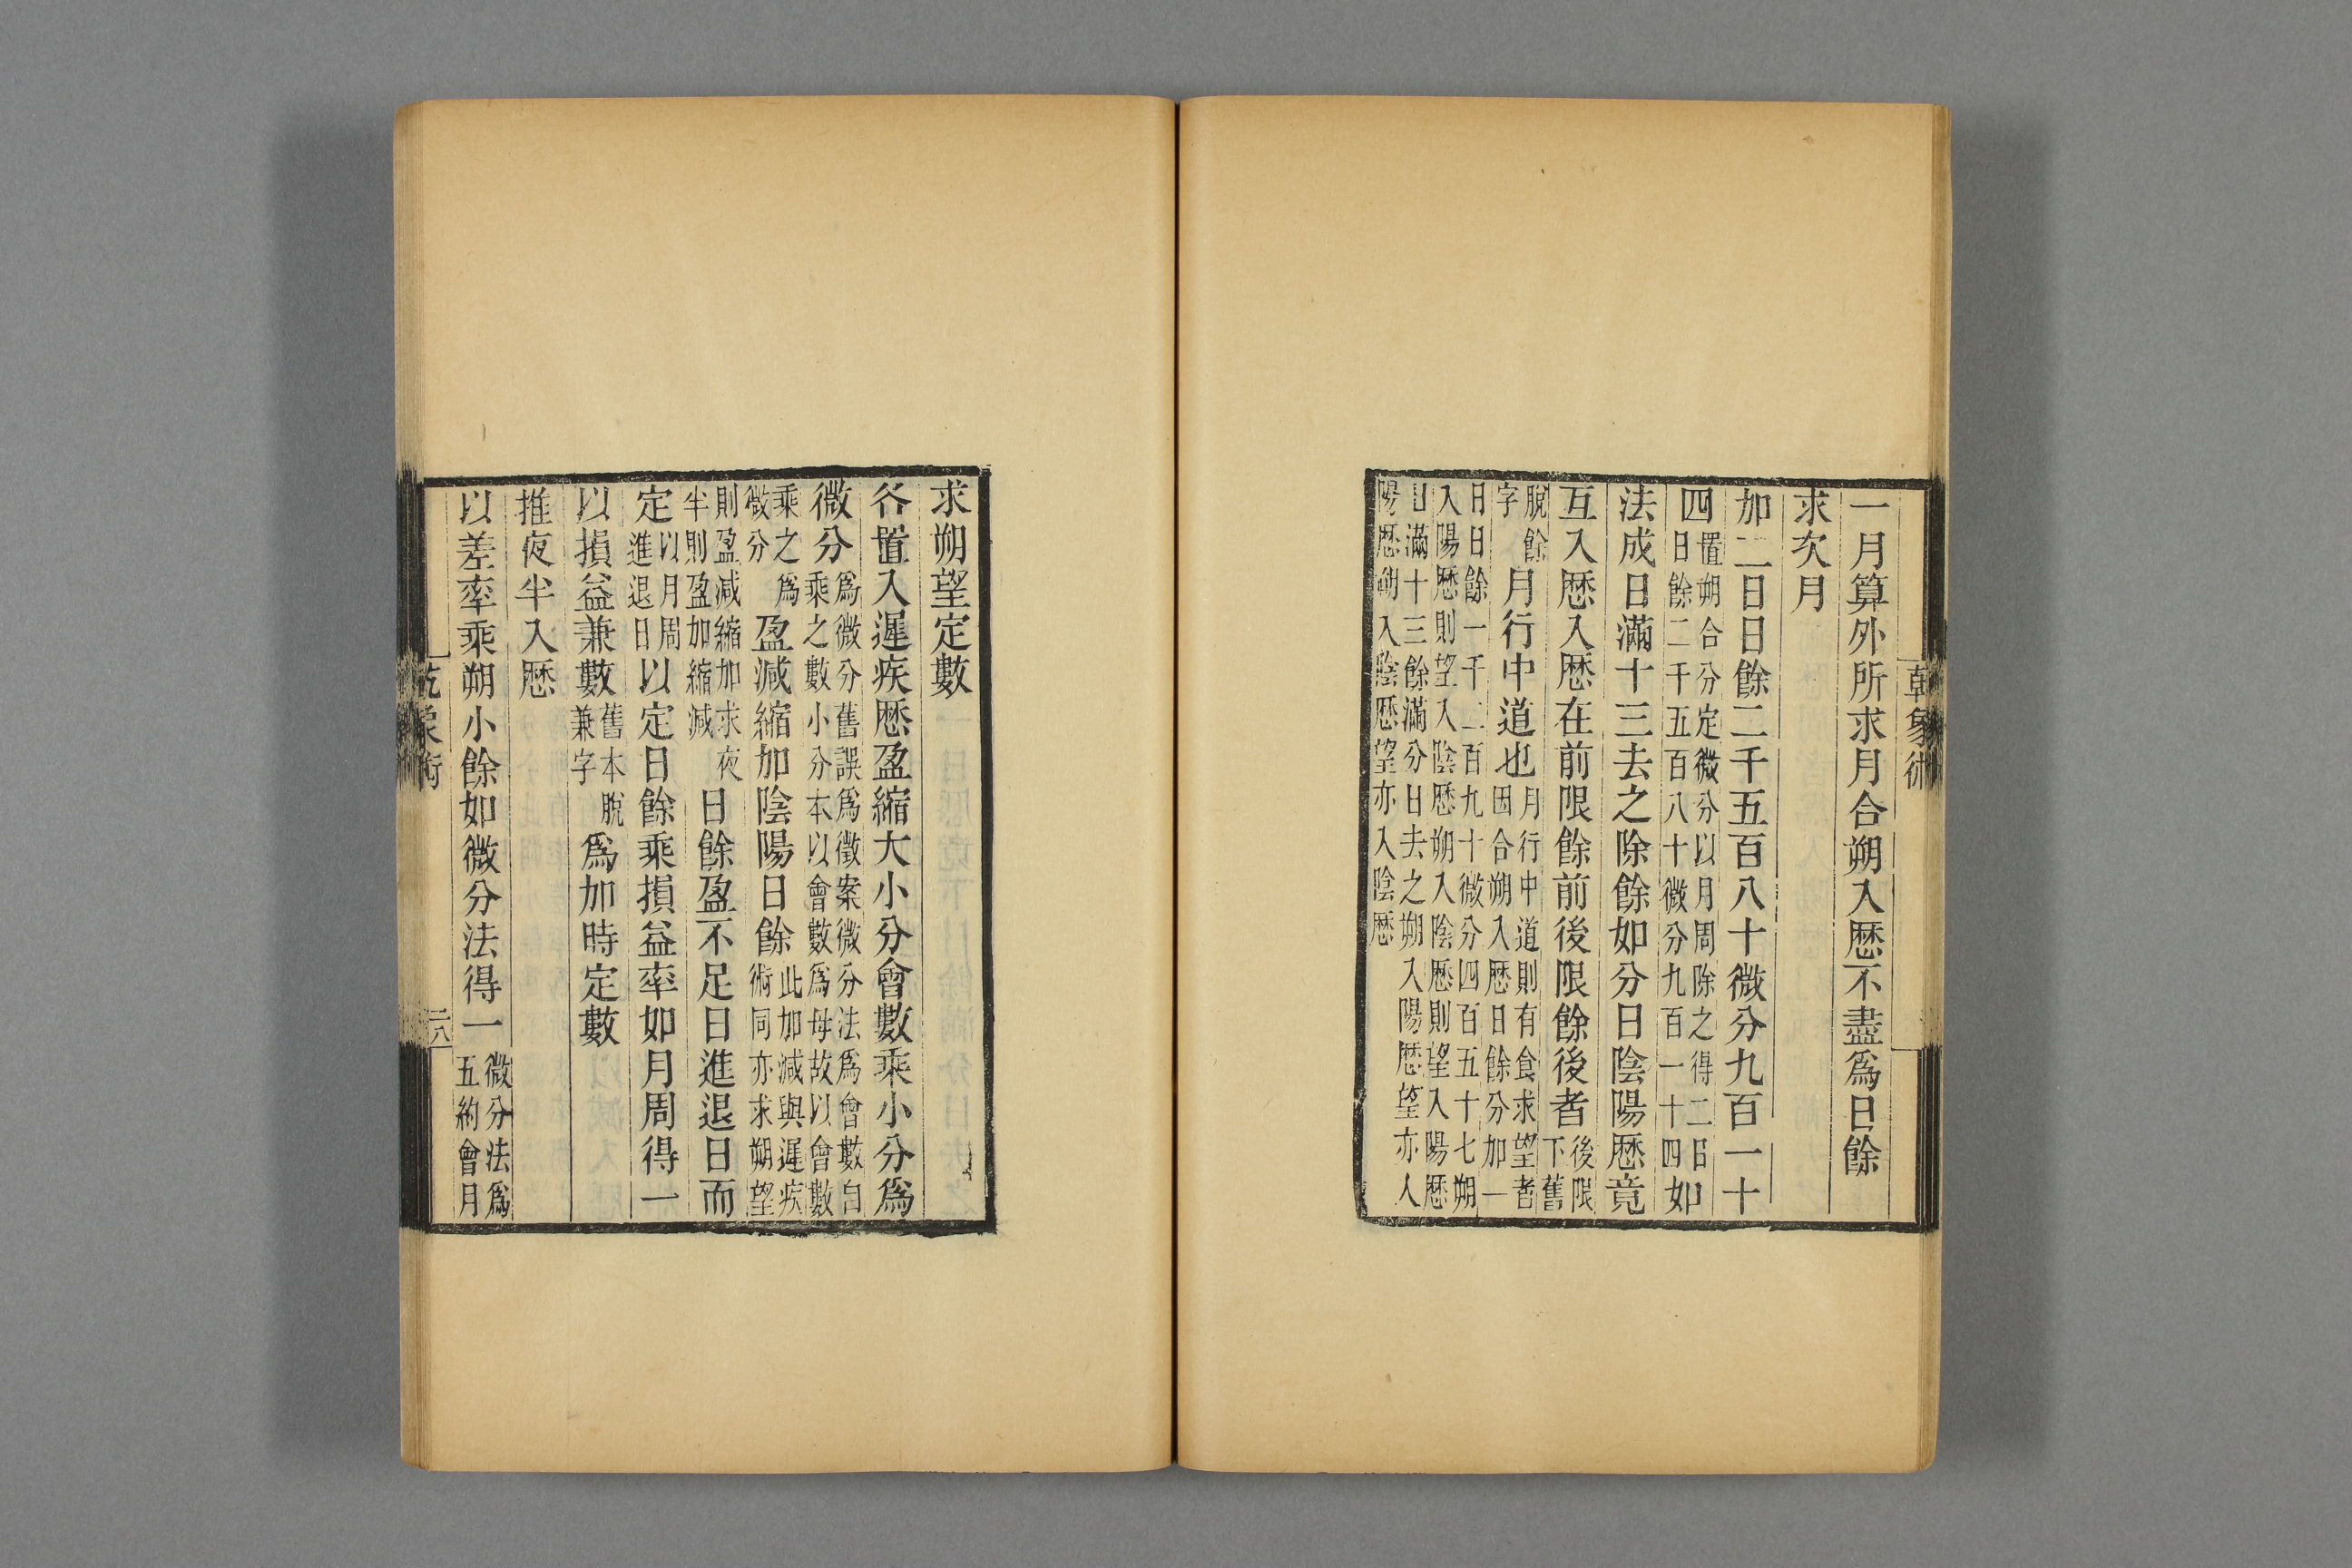 乾象術
一月算外所求月合朔入厯不盡爲日餘
求次月
加二日日餘二千五百八十微分九百一十
四置朔合分定微分以月周除之得二日
日餘二千五百八十微分九百一十四如
法成日滿十三去之除餘如分日陰陽厯竟
互入厯入厯在前限餘前後限餘後者後限
下舊
脫餘
字月行中道也月行中道則有食求望者
因合朔入厯日餘分加一
日日餘一千二百九十微分四百五十七朔
入陽厯則望入陰厯朔入陰厯則望入陽厯
日滿十三餘滿分日去之朔入陽厯望亦入
陽厯朔入陰厯望亦入陰厯
求朔望定數
各置入遲疾厯盈縮大小分會數乘小分爲
微分爲微分舊誤爲徵案微分法爲會數自
乘之數小分本以會數爲母故以會數
乘之爲
微分盈減縮加陰陽日餘此加減與遲疾
術同亦求朔望
則盈減縮加求夜
半則盈加縮減日餘盈不足日進退日而
定以月周
進退日以定日餘乘損益率如月周得一
以損益兼數舊本脫
兼字爲加時定數
推夜半入厯
以差率乘朔小餘如微分法得一微分法爲
五約會月
乾象術
二八